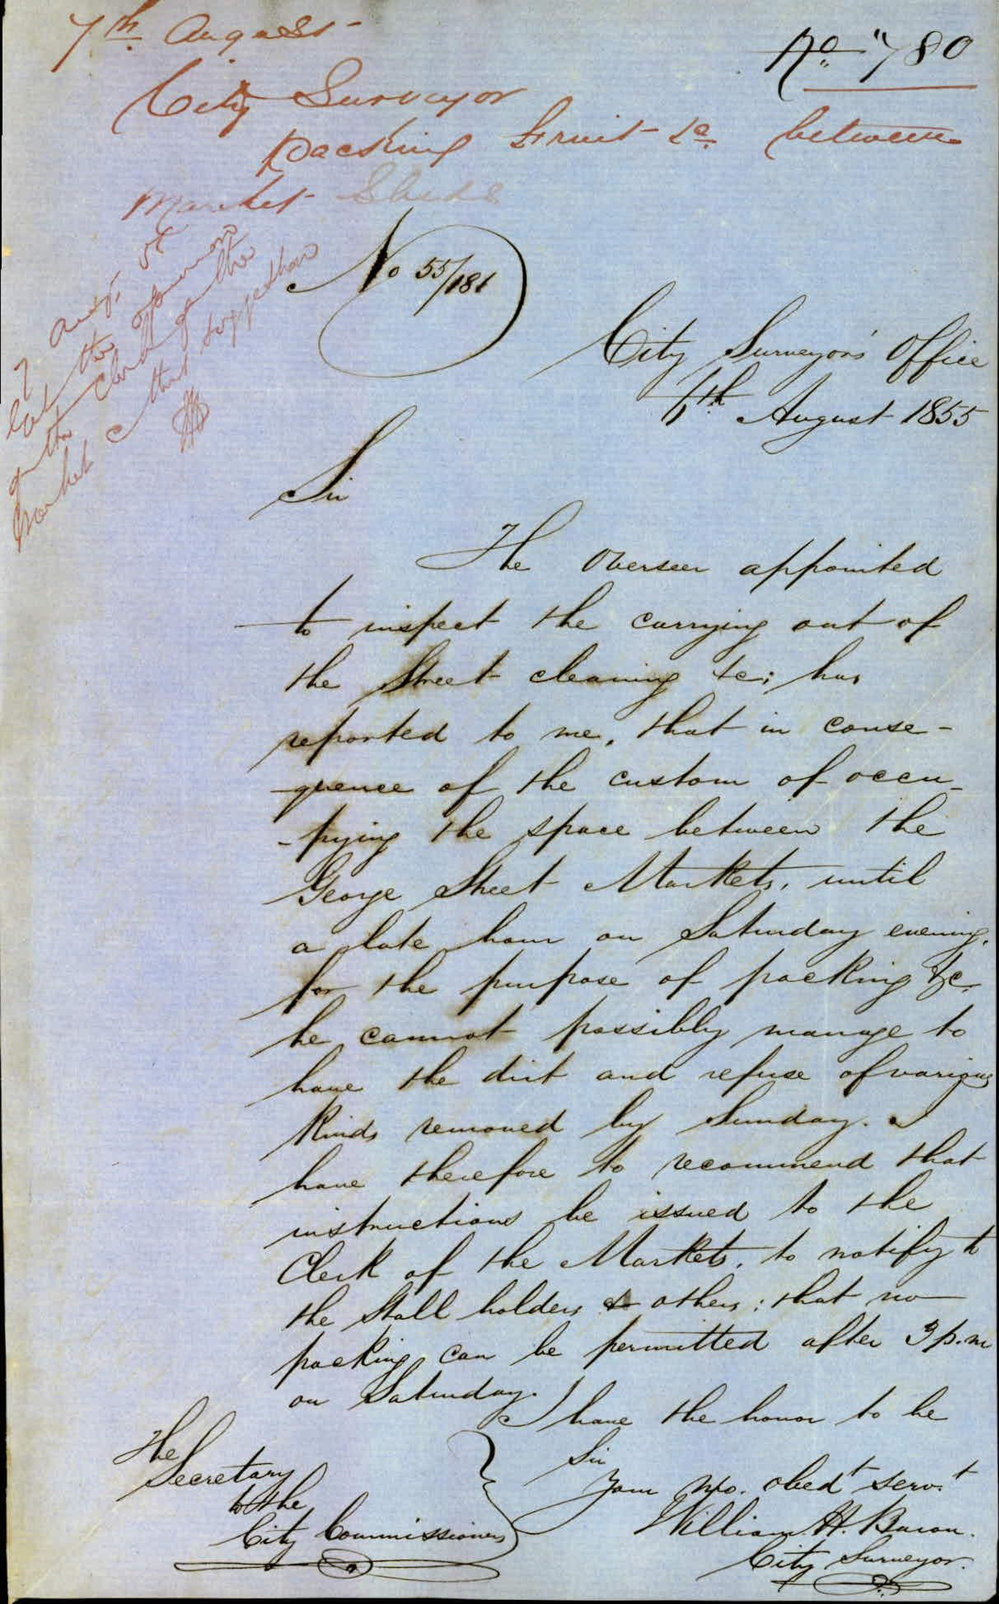 7th August
No 780
City Surveyor
packing Fruit &c. between
Market Sheds
No 55/181
7 Augt.
the opinion
of the Clerk of the
Market
City Surveyor's Office
6th August 1855
Sir
The Overseer appointed
to inspect the carrying out of
the Street cleaning &c; has
reported to me, that in conse-
quence of the custom of occu-
-pying the space between the
George Street Markets, until
a late hour on Saturday evening,
for the purpose of packing &c.
he cannot possibly manage to
have the dirt and refuse of various
kinds removed by Sunday. I
have therefore to recommend that
instructions be issued to the
Clerk of the Markets, to notify to
the Stall holders & others; that no
packing can be permitted after 3 p.m
on Saturday.
I have the honor to be
Sir
Your Mo. obedt servt
William H. Bacon.
City Surveyor.
The
Secretary
to the
City Commissioners